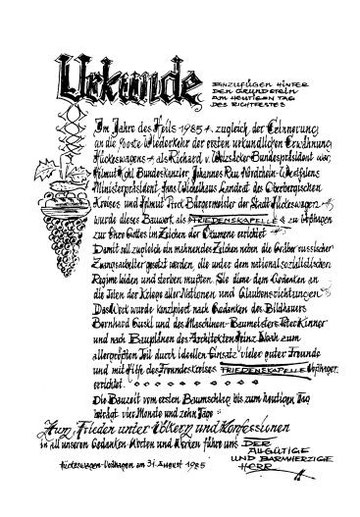 Urkunde
EINZUFÜGEN HINTER
DEN GRUNDSTEIN
AM HEUTIGEN TAG
DES RICHTFESTES
Im Jahre des Heils 1985, zugleich der Erinnerung
an die Wiederkehr der ersten urkundlichen Erwähnung
Hückeswagens als Richard v. Weizsäcker Bundespräsident war,
Helmut Kohl Bundeskanzler, Johannes Rau Nordrhein-Westfalens
Ministerpräsident, Landrat des Oberbergischen
Kreises und Bürgermeister der Stadt Hückeswagen
wurde dieses Bauwerk als FRIEDENSKAPELLE zu
zur Ehre Gottes im Zeichen der Ökumene errichtet
Damit soll zugleich ein mahnendes Zeichen neben die Gräber russischer
Zwangsarbeiter gesetzt werden, die unter dem nationalsozialistischen
Regime leiden und sterben mußten. Sie diene dem Gedenken an
die Toten der Kriege aller Nationen und Glaubensrichtungen
Das Werk wurde konzipiert nach Gedanken des Bildhauers
Bernhard und des Maschinen-Baumeisters Peter Kinner
und nach Bauplänen des Architekten Heinz zum
allergrößten Teil durch ideellen Einsatz vieler guter Freunde
und mit Hilfe des Freundeskreises FRIEDENSKAPELLE
errichtet
Die Bauzeit vom ersten Baumschlag bis zum heutigen Tag
beträgt vier Monate und zehn Tage
Zum Frieden unter Völkern und Konfessionen
in all unseren Gedanken Worten und Werken führe uns DER
ALLGÜTIGE
UND BARMHERZIGE
HERR
Hückeswagen am 31. August 1985